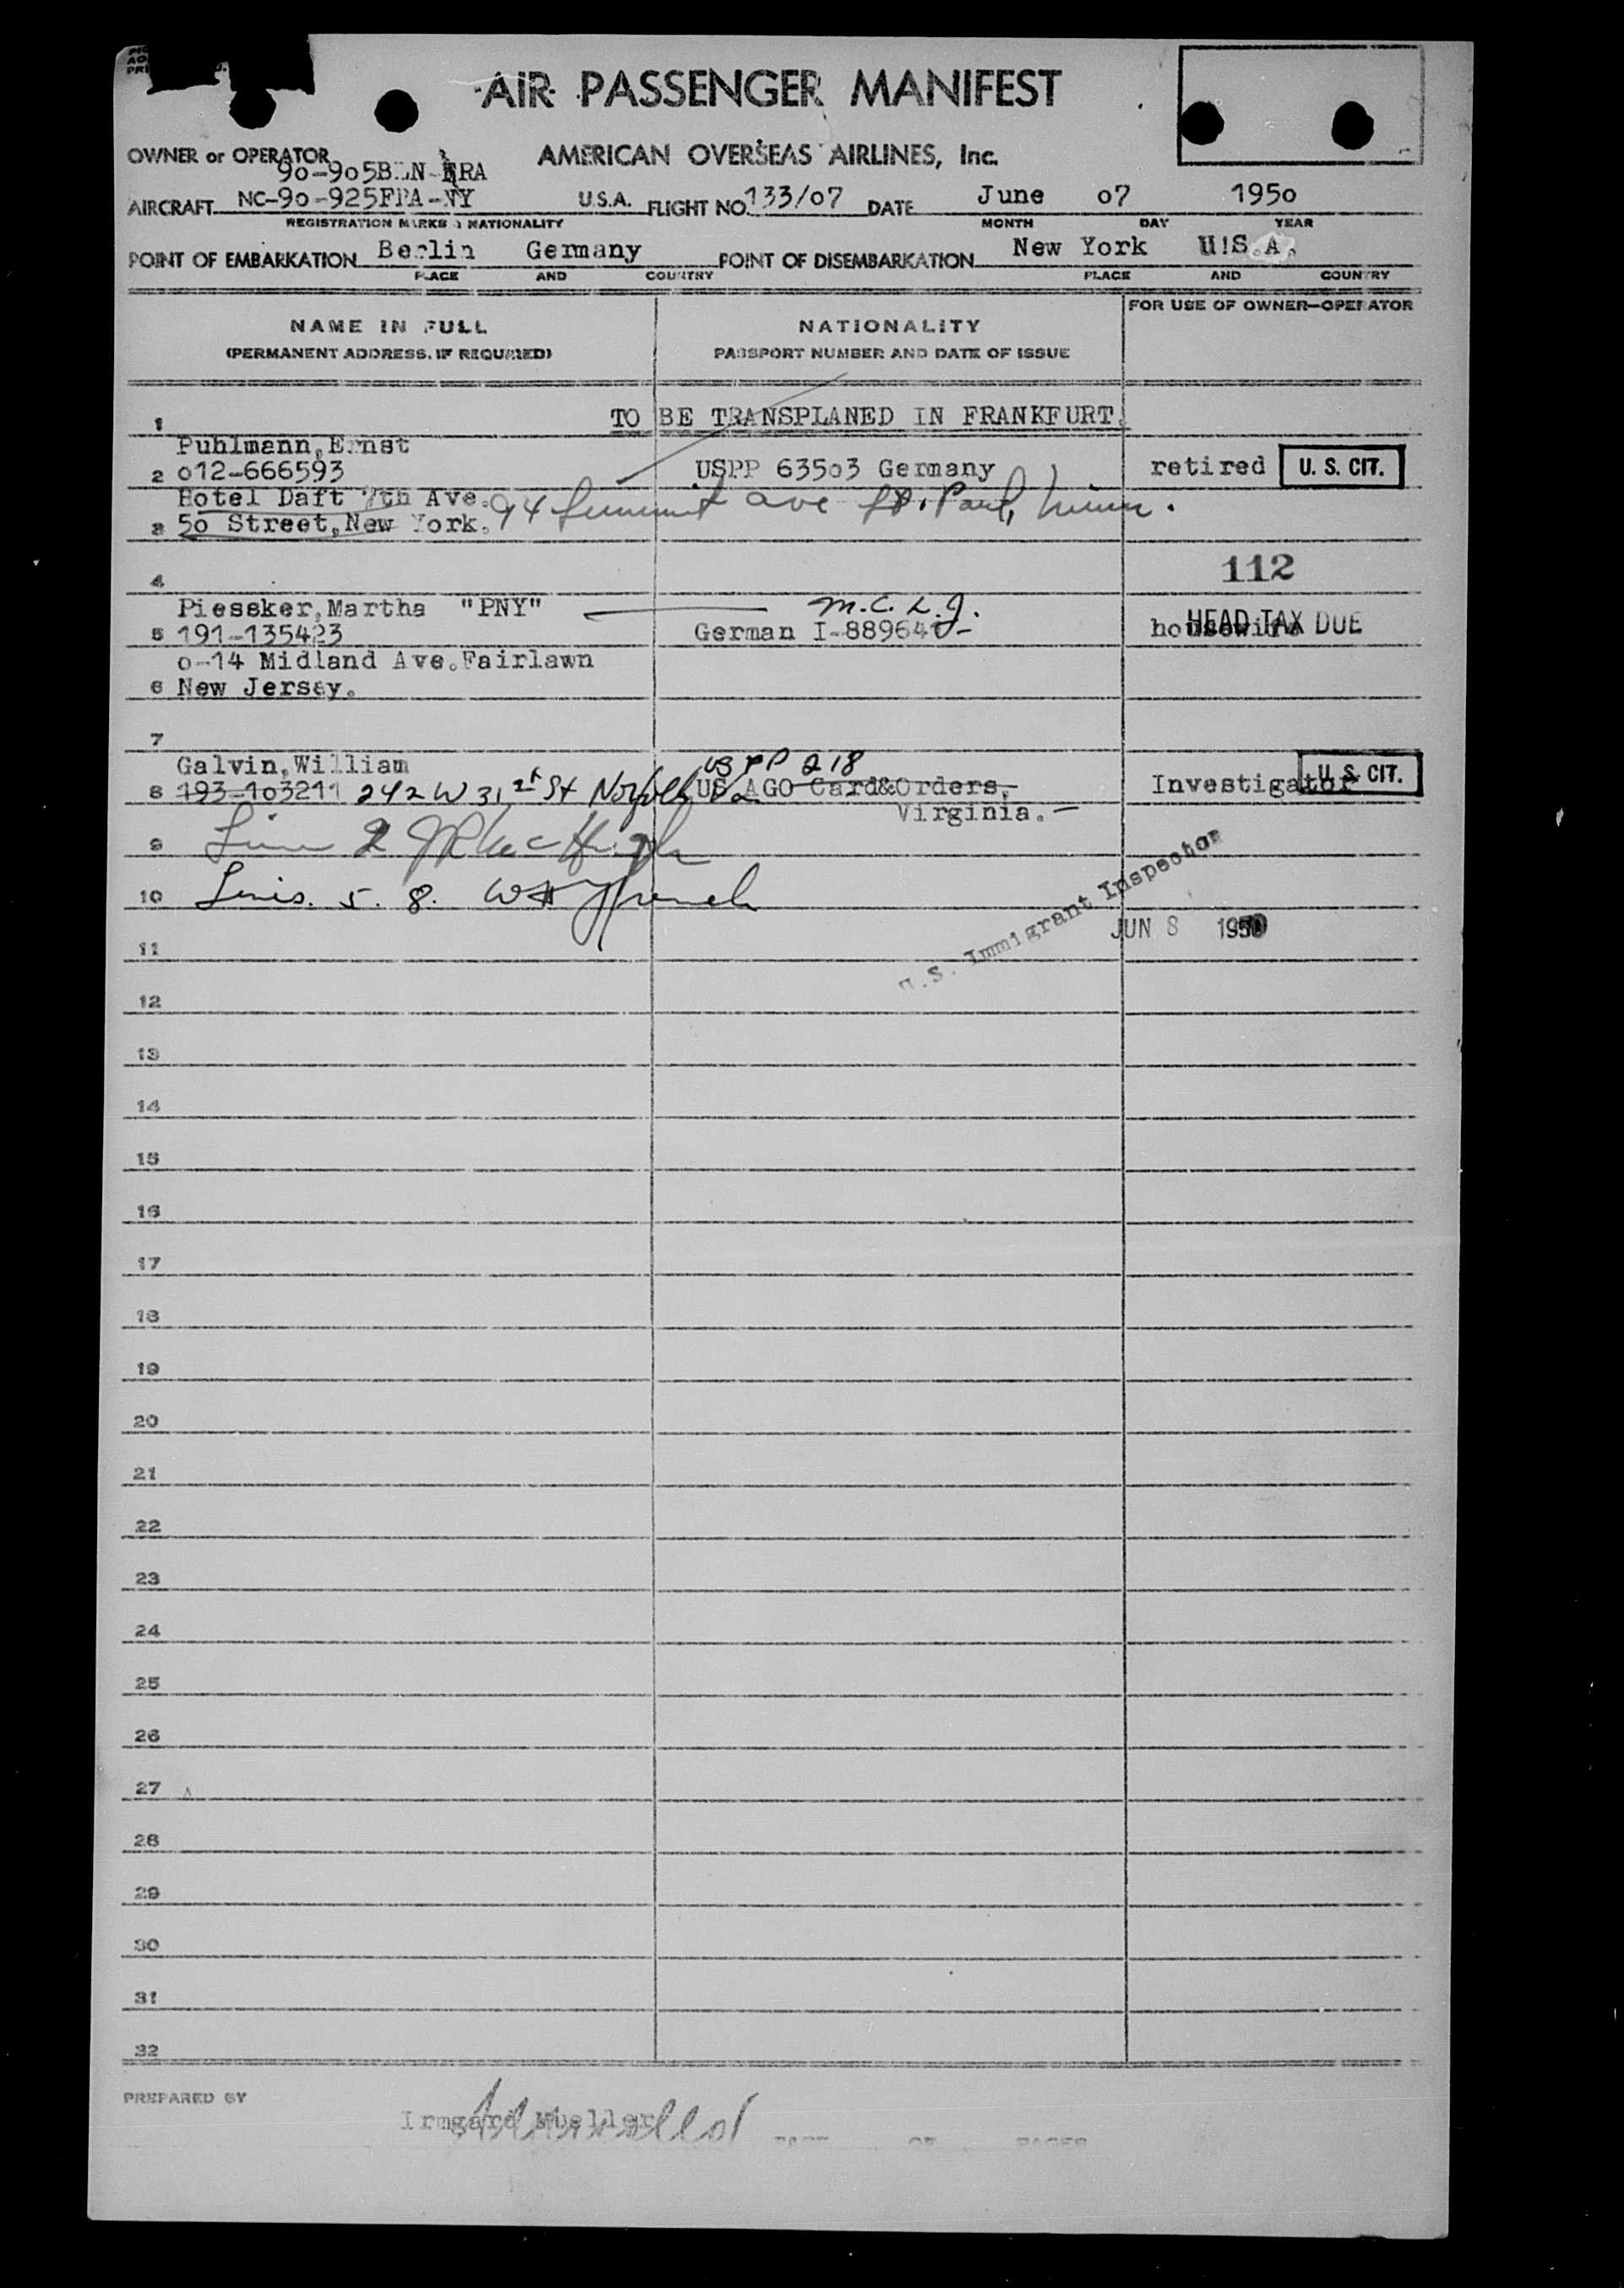 AIR PASSENGER MANIFEST
OWNER or OPERATOR AMERICAN OVERSEAS AIRLINES, Inc.
90-905BLN-FRA
AIRCRAFT NC-90-925FRA-NY U.S.A. FLIGHT NO. 133/07 DATE June 07 1950
REGISTRATION MARKS & NATIONALITY MONTH DAY YEAR
POINT OF EMBARKATION Berlin Germany POINT OF DISEMBARKATION New York U!S.A.
PLACE AND COUNTRY PLACE AND COUNTRY
FOR USE OF OWNER—OPERATOR
NAME IN FULL NATIONALITY
(PERMANENT ADDRESS, IF REQUIRED) PASSPORT NUMBER AND DATE OF ISSUE
1 TO BE TRANSPLANED IN FRANKFURT.
Puhlmann,Ernst
2 012-666593 USPP 63503 Germany retired U. S. CIT.
Hotel Daft 7th Ave. 94 Summit ave St. Paul, Minn.
3 50 Street,New York.
112
4
Piessker,Martha "PNY" M.C.L.J.
5 191-135423 German I-88964 housewife HEAD TAX DUE
0-14 Midland Ave.Fairlawn
6 New Jersey.
7
Galvin,William US PP 218
8 193-103211 242 W 31 St Norfolk Va US AGO Card&Orders. Investigator U. S. CIT.
Virginia.—
9 Line 2
10 Lines. 5. 8. W H French
U.S. Immigrant Inspector
JUN 8 1950
11
12
13
14
15
16
17
18
19
20
21
22
23
24
25
26
27
28
29
30
31
32
PREPARED BY
Irmgard Mueller
PAGE OF PAGES